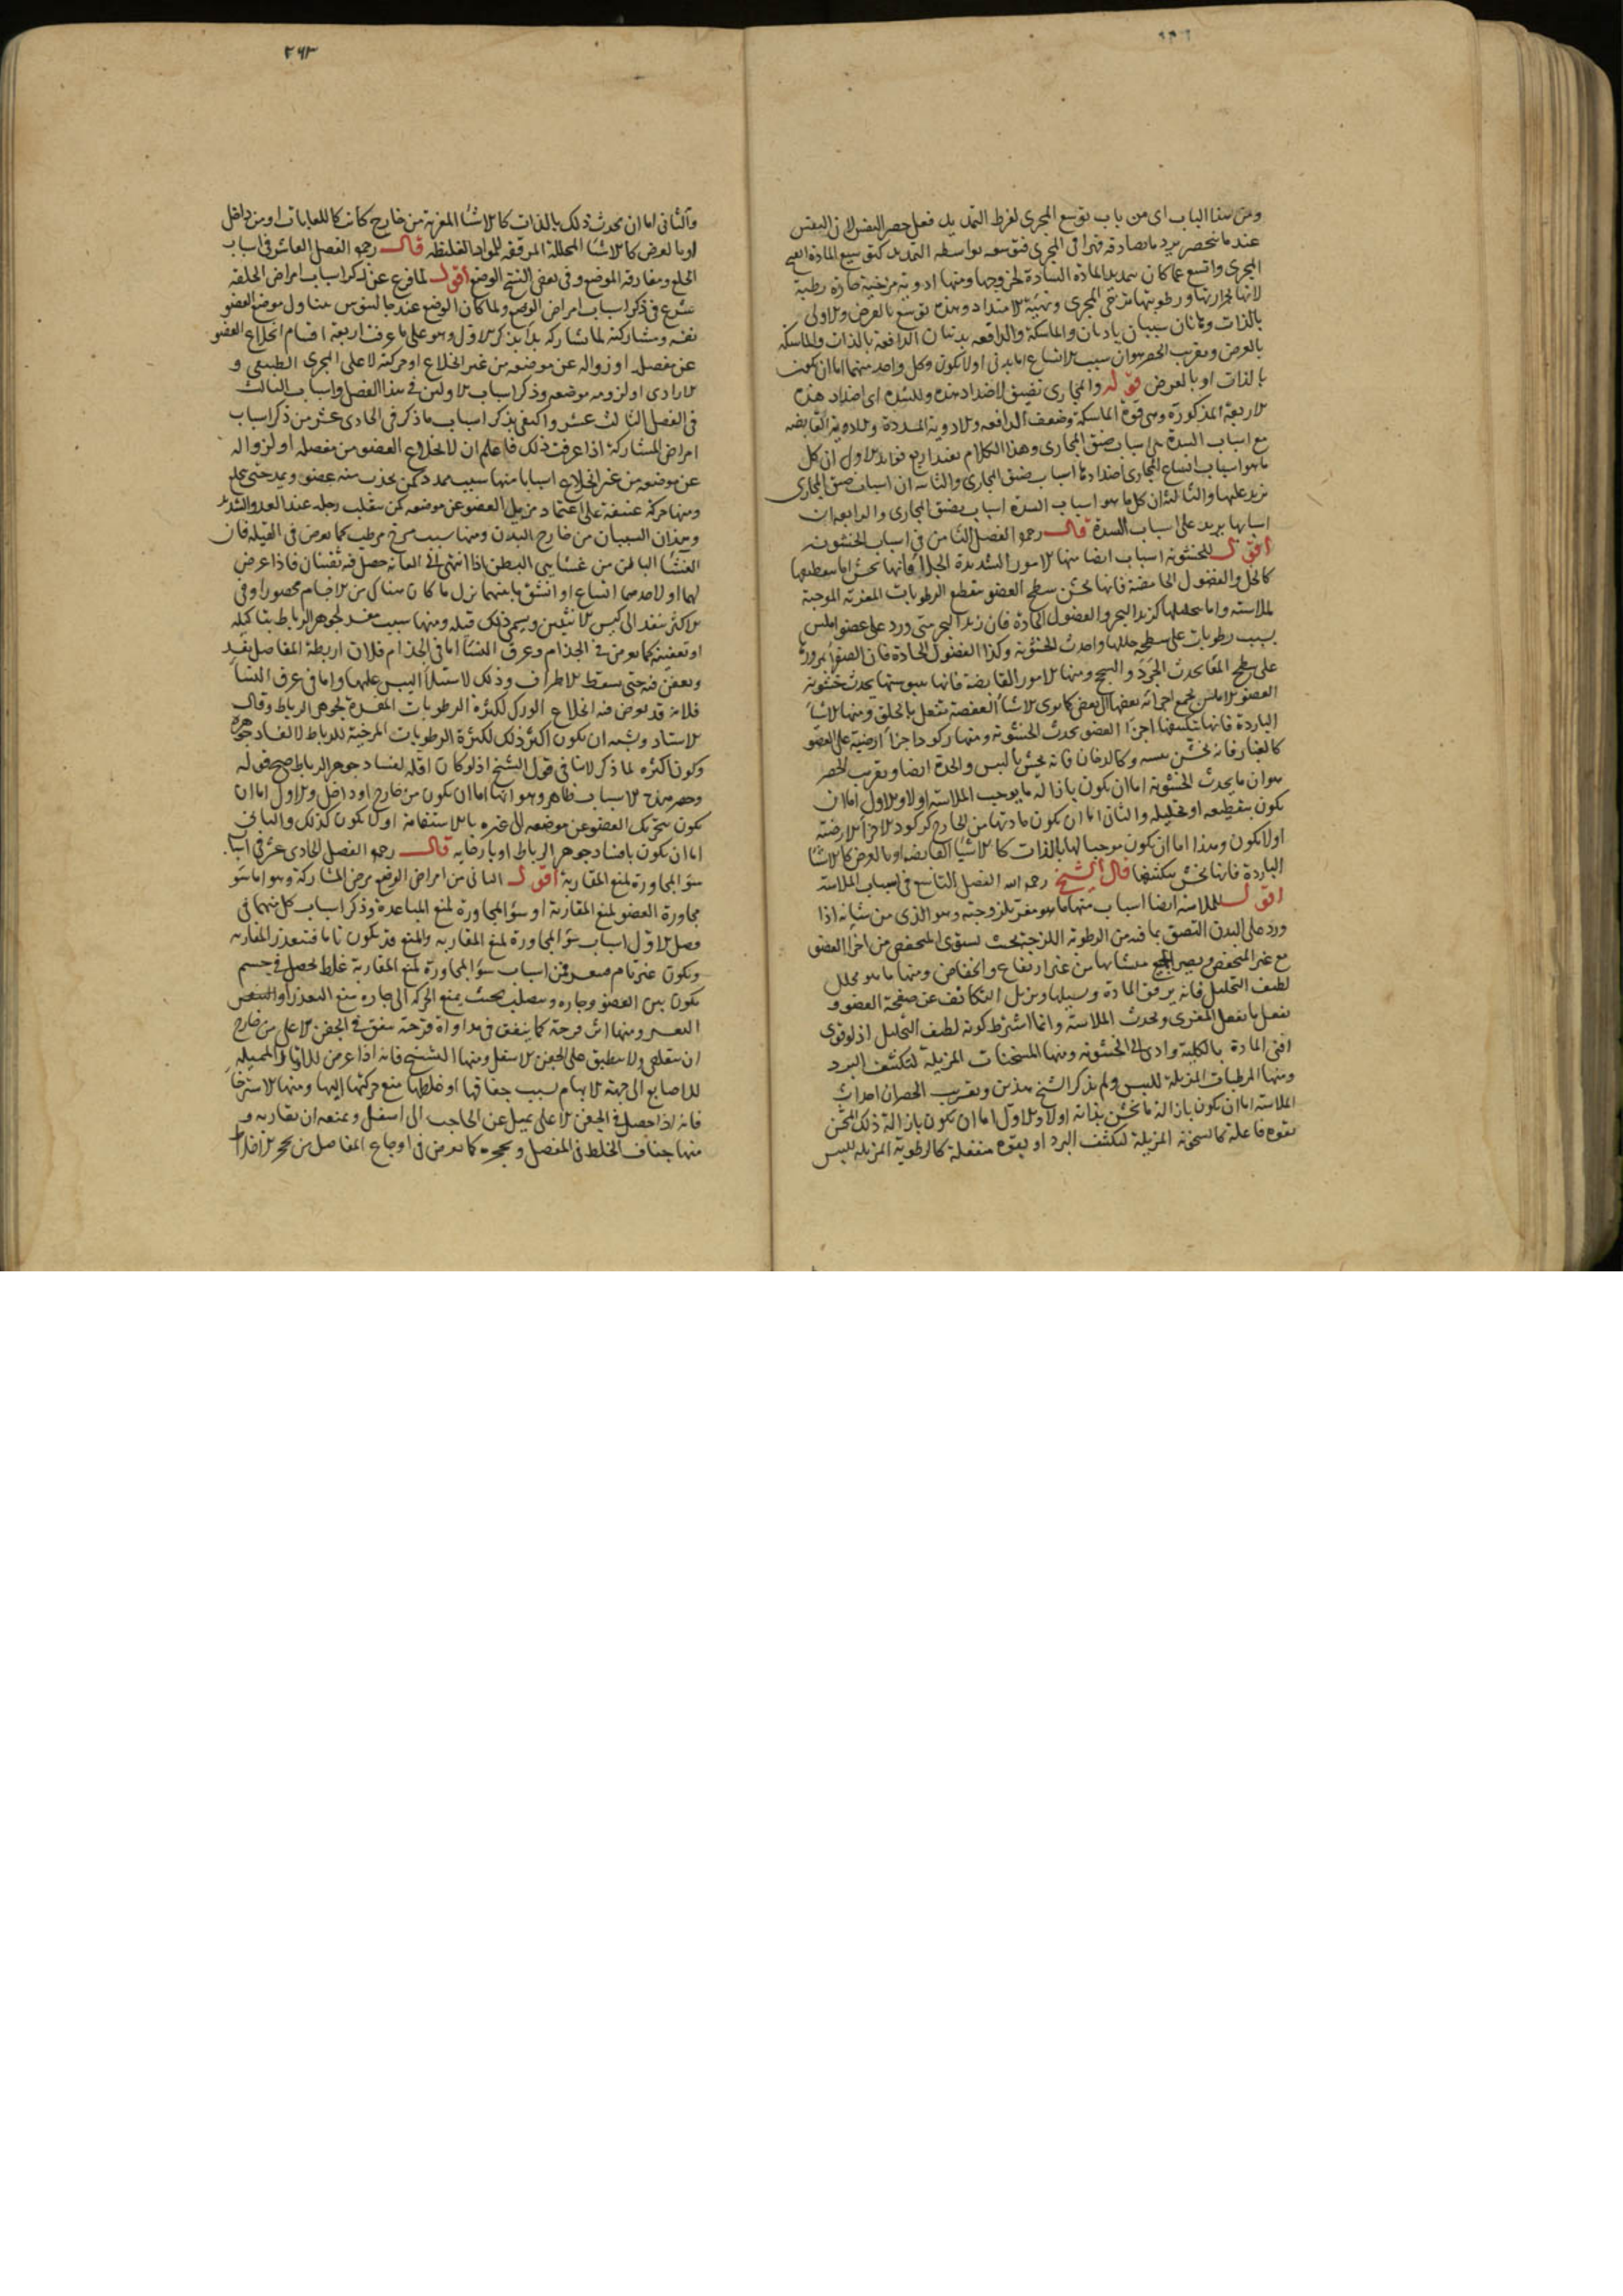 ومن هذا الباب اى من باب توسع المجرى لفرط التمديد فعل حصر النفس لان النفس
عندما ينحصر يرد ما يصادفه قهرا فى المجرى فتوسعه بواسطه التمديد كتوسيع المادة
المجرى واتسع عما كان بتمديد المادة السادة لخروجها ومنها ادوية مرخية حارة رطبة
لانها بحرارتها ورطوبتها ترخى المجرى وتهيئه للامتداد وهذه توسع بالعرض والاولى
بالذات وثانان سببان باديان والماسكة والدافعه بدنيان الدافعة بالذات والماسكة
بالعرض وتقريب الحصر هو ان سبب الاتساع اما بدنى اولا يكون وكل واحد منهما اما ان يكون
بالذات او بالعرض قوله والمجارى تضيق لاضداد هذه وللسدة اى اضداد هذه
الاربعة المذكورة وهى قوة الماسكة وضعف الدافعه والادوية المسددة والادوية القابضه
مع اسباب السدة هى اسباب ضيق المجارى وهذا الكلام يفيد اربع فوايد الاول ان كل
ما هو اسباب اتساع المجارى اضدادها اسباب ضيق المجارى والثانية ان اسباب ضيق المجارى
تزيد عليها والثالثة ان كل ما هو اسباب السدة اسباب يضيق المجارى والرابعة ان
اسبابها يزيد على اسباب السدة قال رحمه الفصل الثامن فى اسباب الخشونه
اقول للخشونة اسباب ايضا منها الامور الشديدة الجلاء فانها تخشن اما بتقطيعها
كالخل والفضول الحامضة فانها تخشن سطح العضو بتقطع الرطوبات المغرية الموجبة
للملاسة واما بتحليلها كزبد البحر والفضول الحادة فان زبد البحر متى ورد على عضو املس
بسبب رطوبات على سطحه حللها واحدث الخشونة وكذا الفضول الحادة فان الصفراء بمرورها
على سطح المعا يحدث الجرد والسحج ومنها الامور القابضة فانها بيبوستها يحدث خشونة
العضو الاملس بجمع اجزائه بعضها الى بعض كما يرى الاشياء العفصة تفعل بالحلق ومنها الاشياء
الباردة فانها بتكثيفها اجزاء العضو يحدث الخشونة ومنها ركود اجزاء ارضية على العضو
كالغبار فانه يخشن بنفسه وكالدخان فانه يخشن باليبس والحدة ايضا وتقريب الحصر
هو ان ما يحدث الخشونة اما ان يكون بازالة ما يوجب الملاسة اولا والاول اما ان
يكون بتقطيعه او تحليله والثانى اما ان يكون مادتها من الخارج كركود الاجزاء الارضية
اولا يكون وهذا اما ان يكون موجبا لها بالذات كالاشياء القابضه او بالعرض كالاشياء
الباردة فانها تخشن بتكثيفها قال الشيخ رحمه الله الفصل التاسع فى اسباب الملاسة
اقول للملاسة ايضا اسباب منها ما هو مغر بلزوجته وهو الذى من شأنه اذا
ورد على البدن التصق بما فيه من الرطوبة اللزجة بحيث يستوى المنخفض من اجزاء العضو
مع غير المنخفض ويصير متشابها من غير ارتفاع وانخفاض ومنها ما هو محلل
لطيف التحليل فانه يرقق المادة ويسيلها ويزيل التكاثف عن صفحة العضو و
يفعل ما يفعل المغرى ويحدث الملاسة وانما اشترط كونه لطيف التحليل اذ لو قوى
افنى المادة بالكلية وادى الى الخشونه ومنها المسخنات المزيلة لتكثيف البرد
ومنها المرطبات المزيلة لليبس ولم يذكر الشيخ هذين وتقريب الحصر ان احداث
الملاسة اما ان يكون بازالة ما يخشن بذاته اولا والاول اما ان يكون بازالة ذلك المخشن
بقوة فاعلة كالسخنة المزيلة لتكثف البرد او بقوة منفعلة كالرطوبة المزيلة لليبس
٢٩٣
والثانى اما ان يحدث ذلك بالذات كالاشياء المغرية من خارج كانت كاللعابات او من داخل
او بالعرض كالاشياء المحللة المرققه للمواد الغليظه قال رحمه الفصل العاشر فى اسباب
الخلع ومفارقة الموضع وفى بعض النسخ الوضع اقول لما فرغ عن ذكر اسباب امراض الخلقه
شرع فى ذكر اسباب امراض الوضع ولما كان الوضع عند جالينوس يتناول موضع العضو
نفسه ومشاركته لما يشاركه بدأ بذكر الاول وهو على ما عرفت اربعة اقسام انخلاع العضو
عن مفصله او زواله عن موضعه من غير انخلاع او حركته لا على المجرى الطبيعى و
الارادى او لزومه موضعه وذكر اسباب الاولين فى هذا الفصل واسباب الثالث
فى الفصل الثالث عشر واكتفى بذكر اسباب ما ذكر فى الحادى عشر من ذكر اسباب
امراض المشاركة اذا عرفت ذلك فاعلم ان لانخلاع العضو من مفصله او لزواله
عن موضعه من غير انخلاع اسبابا منها سبب ممدد كمن يجذب منه عضو ويمد حتى ينخلع
ومنها حركة عنيفة على اعتماد مزيل العضو عن موضعه كمن ينقلب رجله عند العدو الشديد
وهذان السببان من خارج البدن ومنها سبب مرخ مرطب كما يعرض فى القيلة فان
الغشاء الباطن من غشايى البطن اذا انتهى الى العانة حصل فيه ثقبتان فاذا عرض
لهما او لاحدهما اتساع او انشق ما بينهما نزل ما كان هناك من الاجسام محصورا وفى
الاكثر ينفذ الى كيس الانثيين ويسمى ذلك قيله ومنها سبب مفسد لجوهر الرباط بتاكيله
او تعفينه كما يعرض فى الجذام وعرق النساء اما فى الجذام فلان اربطة المفاصل يفسد
ويعفن فيه حتى يسقط الاطراف وذلك لاستيلاء اليبس عليها واما فى عرق النساء
فلانه قد يعرض فيه انخلاع الورك لكثرة الرطوبات المفسدة لجوهر الرباط وقال
الاستاد ويشبه ان يكون اكثر ذلك لكثرة الرطوبات المرخية للرباط لا لفساد جوهره
وكون اكثره لما ذكر لا ينافى قول الشيخ اذ لو كان اقله لفساد جوهر الرباط صح قوله
وحصر هذه الاسباب ظاهر وهو انها اما ان يكون من خارج او داخل والاول اما ان
يكون بتحريك العضو عن موضعه الى غيره بالاستقامة او لا يكون كذلك والثانى
اما ان يكون بافساد جوهر الرباط او بارخايه قال رحمه الفصل الحادى عشر فى اسباب
سوء المجاورة لمنع المقاربة اقول الثانى من امراض الوضع مرض المشاركة وهو اما سوء
مجاورة العضو لمنع المقاربة او سوء المجاورة لمنع المباعدة وذكر اسباب كل منهما فى
فصل الاول اسباب سوء المجاورة لمنع المقاربه والمنع قد يكون تاما فتتعذر المقاربه
ويكون غير تام فيعسر فمن اسباب سوء المجاورة لمنع المقاربة غلظ يحصل فى جسم
يكون بين العضو وجاره ويصلب بحيث يمنع الحركة الى جاره منع التعذر او
التعسر ومنها اثر قرحة كما يتفق فى مداواة قرحة يتفق فى الجفن الاعلى من خارج
ان يتقلص ولا ينطبق على الجفن الاسفل ومنها التشنج فانه اذا عرض للاوتار المميلة
للاصابع الى جهة الابهام بسبب جفافها او غلظها منع حركتها اليها ومنها الاسترخاء
فانه اذا حصل فى الجفن الاعلى يميل عن الحاجب الى اسفل ويمنعه ان يقاربه و
منها جفاف الخلط فى المفصل وتحجره كما يعرض فى اوجاع المفاصل من تحجر الاخلاط